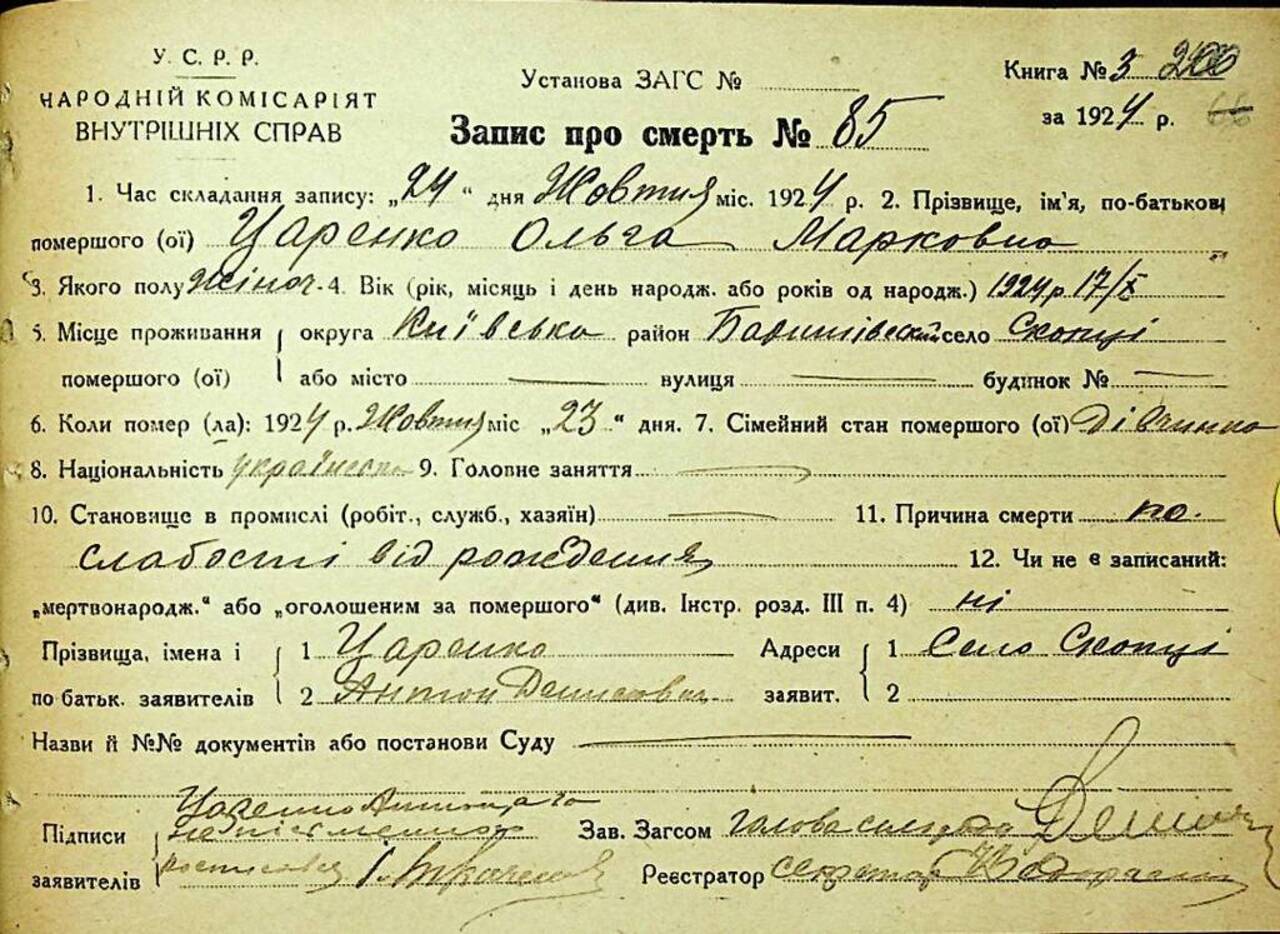 У. С. Р. Р.
НАРОДНІЙ КОМІСАРІЯТ
ВНУТРІШНІХ СПРАВ
Установа ЗАГС №
Книга № 3 200
за 1924 р. 66
Запис про смерть № 85
1. Час складання запису: „24“ дня Жовтня міс. 1924 р. 2. Прізвище, ім'я, по-батькові
помершого (ої) Царенко Ольга Марковна
3. Якого полу жіноч. 4. Вік (рік, місяць і день народж. або років од народж.) 1924 р 17/X
5. Місце проживання округа Київсько район село Скопці
помершого (ої) або місто — вулиця — будинок № —
6. Коли помер (ла): 1924 р. Жовтня міс „23“ дня. 7. Сімейний стан помершого (ої) Дівчинка
8. Національність українска 9. Головне заняття —
10. Становище в промислі (робіт., служб., хазяїн) — 11. Причина смерти по
слабості від рождения 12. Чи не є записаний:
„мертвонародж.“ або „оголошеним за помершого“ (див. Інстр. розд. III п. 4) ні
Прізвища, імена і 1 Царенко Адреси 1 Село Скопці
по батьк. заявителів 2 Антон Денисович заявит. 2
Назви й №№ документів або постанови Суду —
Царенко
Підписи Зав. Загсом голова
заявителів Реєстратор секретар